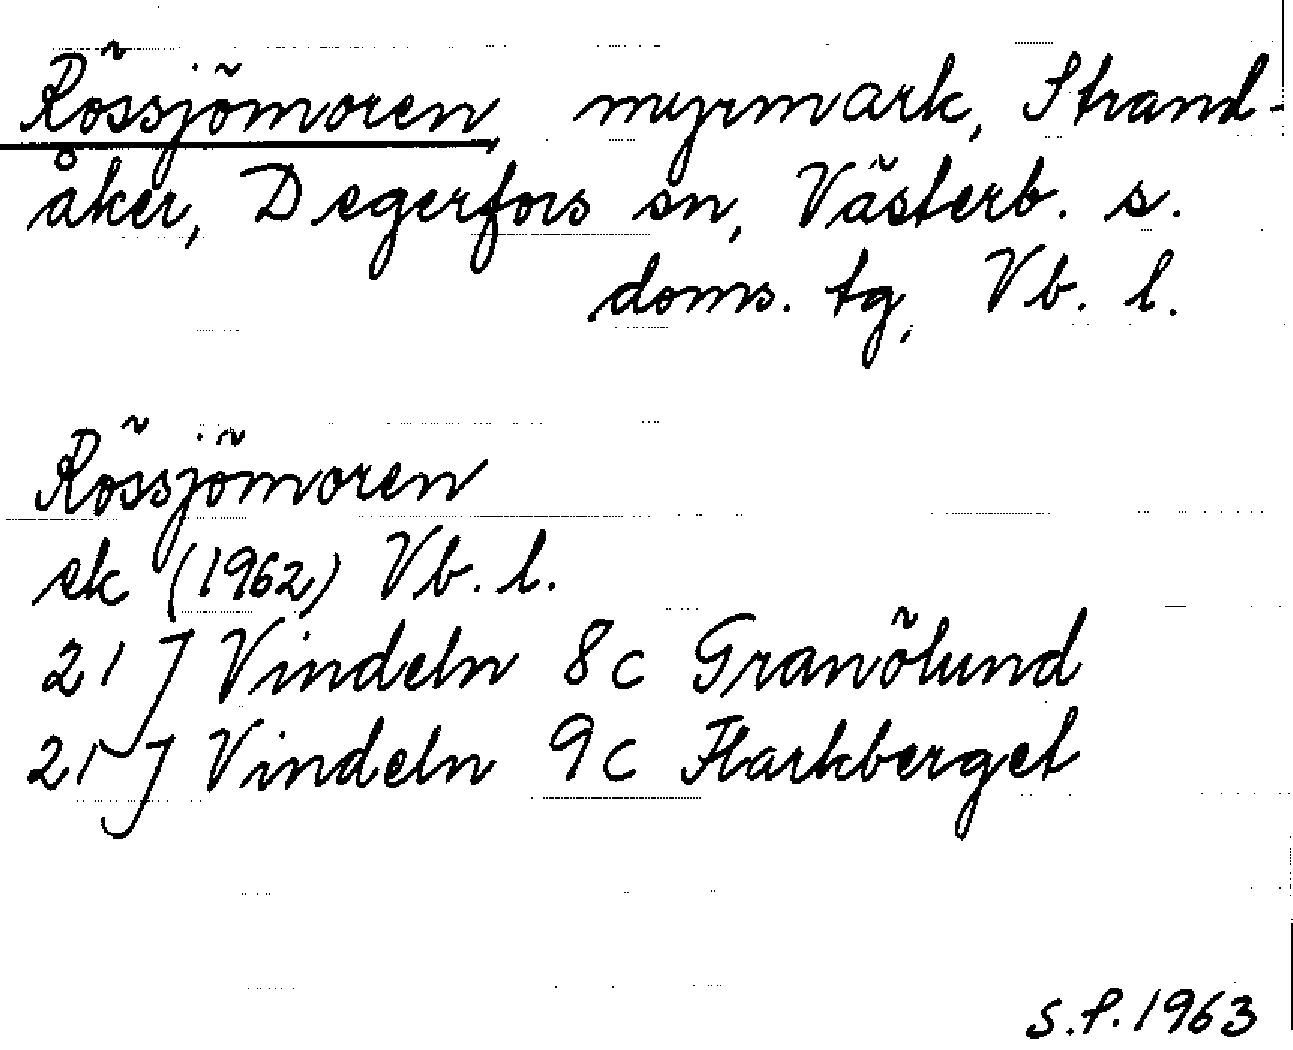 Rössjömoren, myrmark, Strand-
åker, Degerfors sn, Västerb. s.
doms. tg, Vb. l.
Rössjömoren
ek (1962) Vb. l.
21 J Vindeln 8c Granölund
21 J Vindeln 9c Flarkberget
S.P. 1963